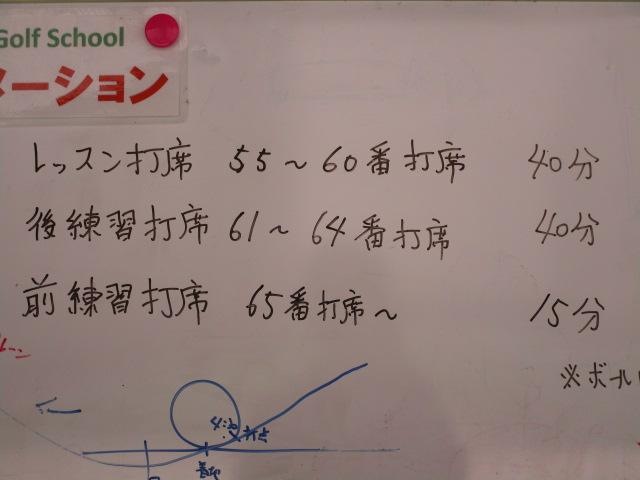 Golf School
メーション
レッスン打席 55～60番打席 40分
後練習打席 61～64番打席 40分
前練習打席 65番打席～ 15分
※ボール
4:30
打点